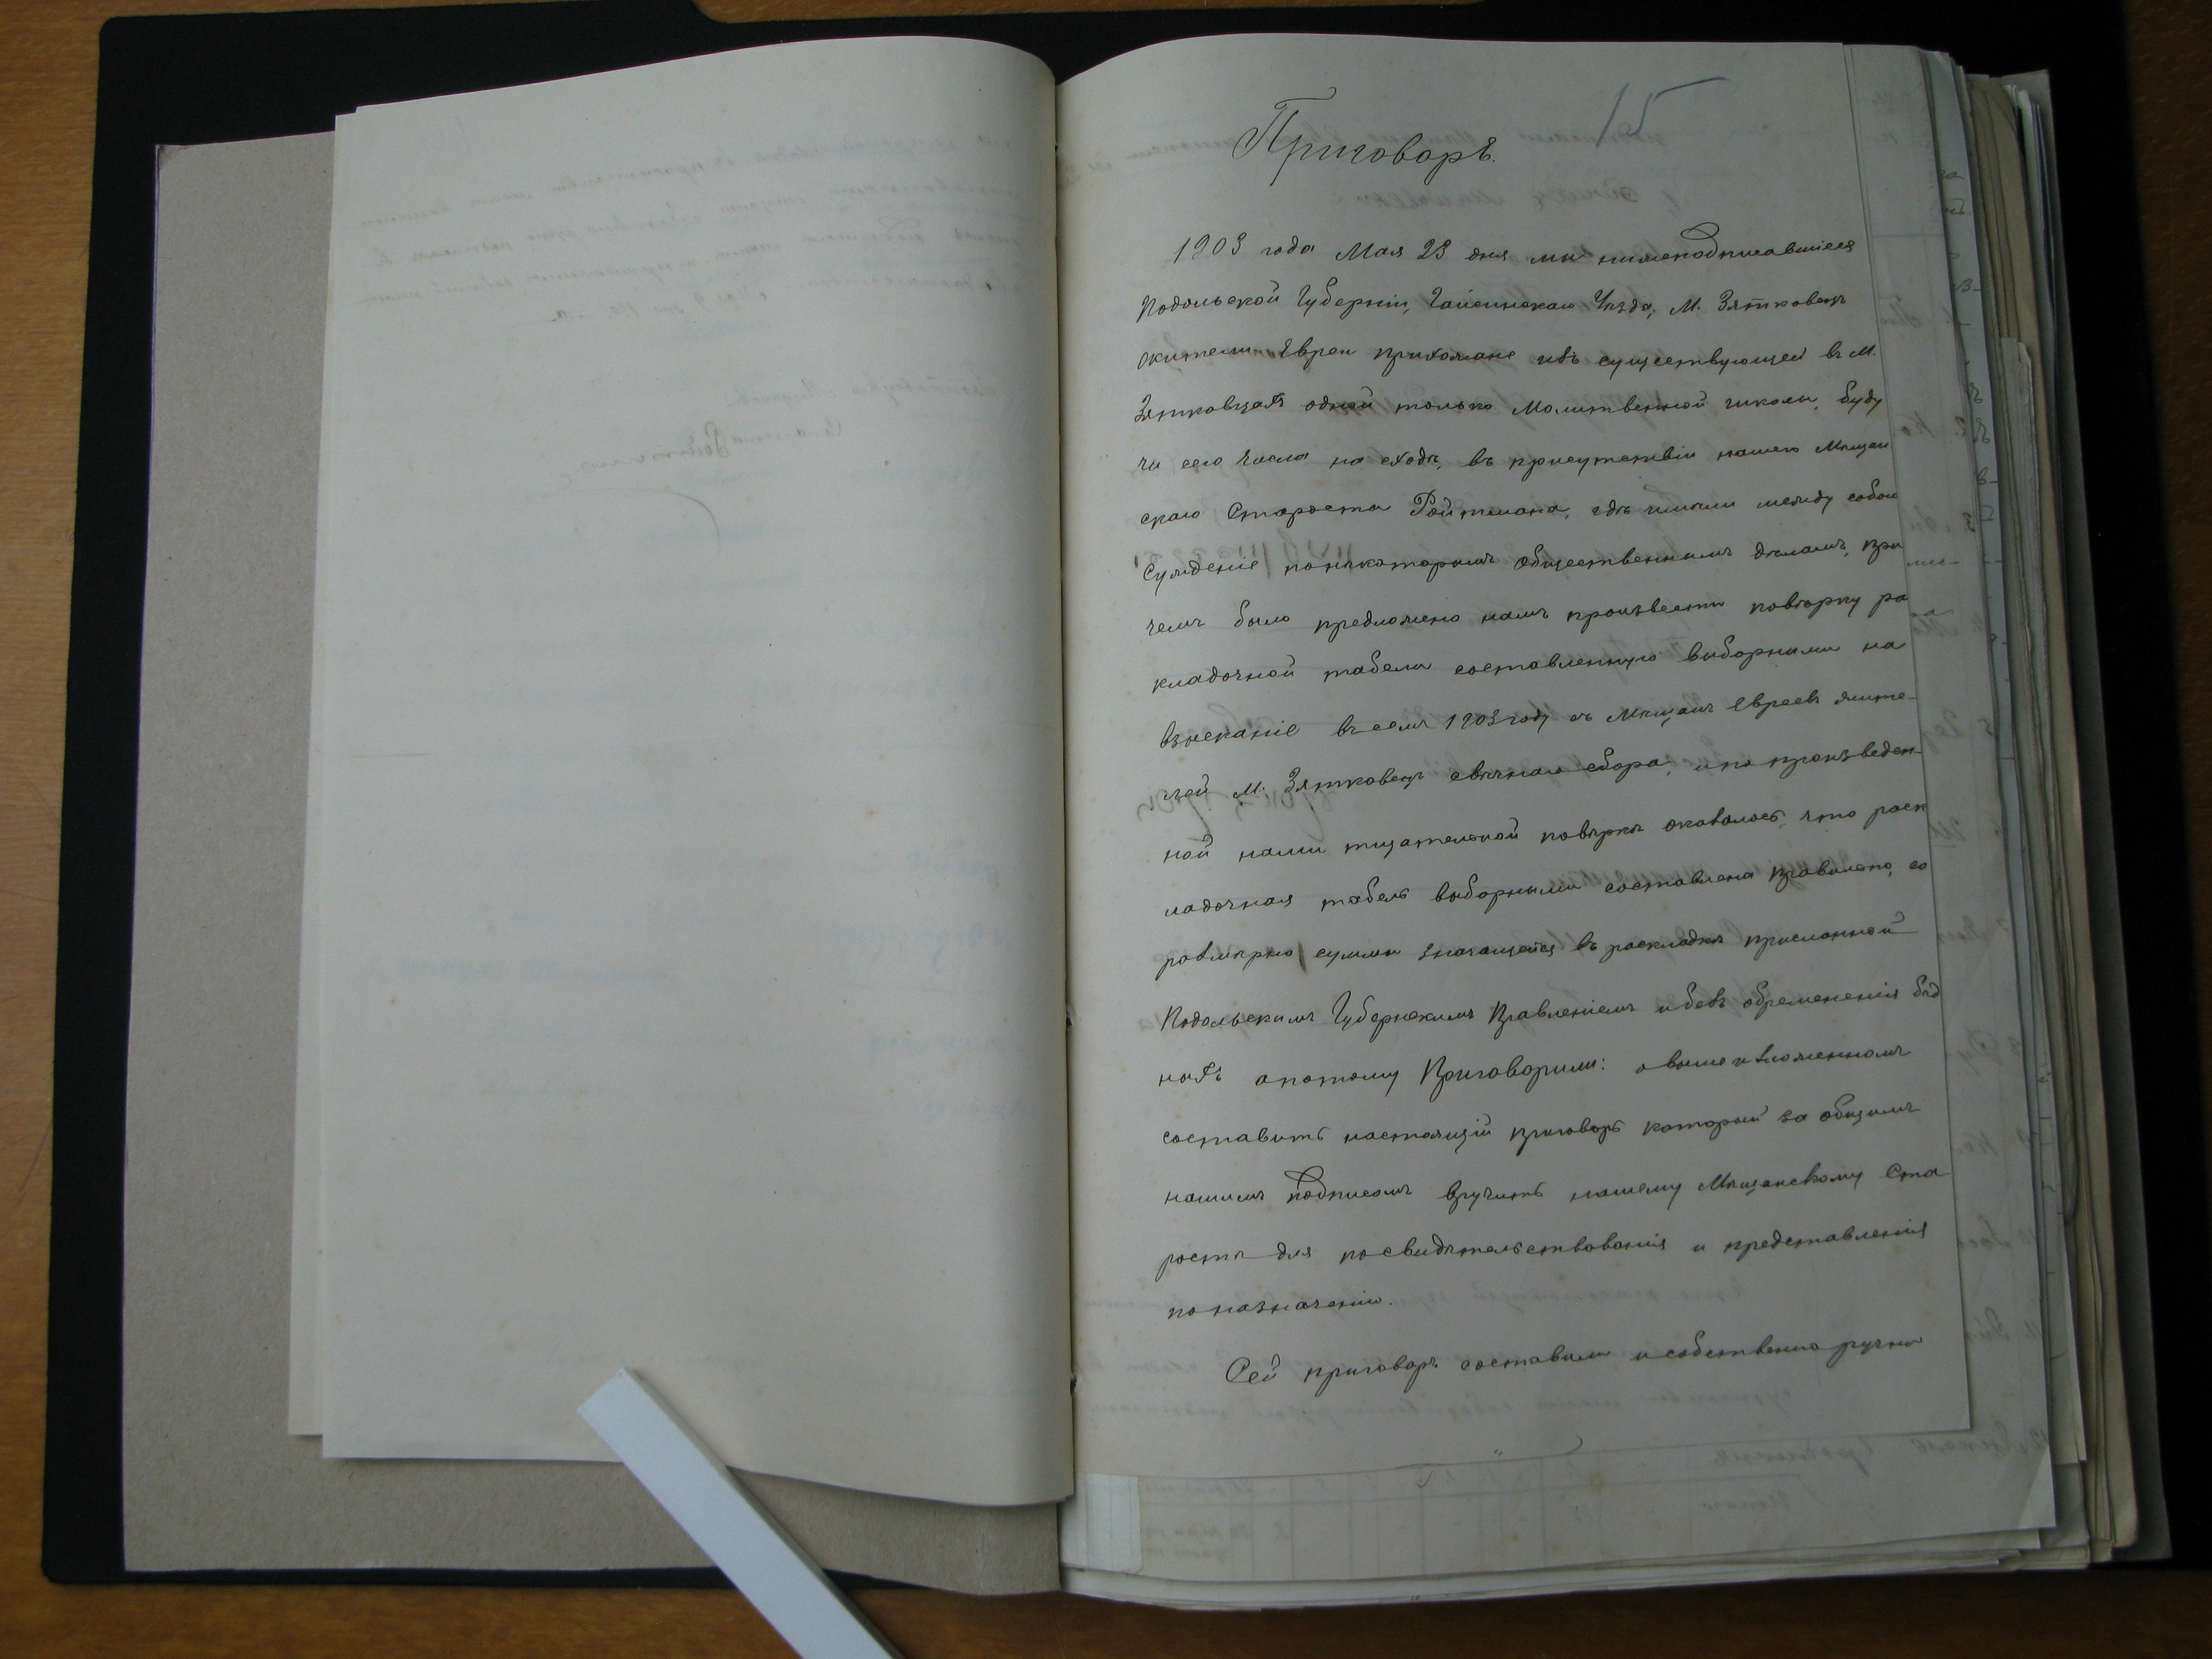 15
Приговоръ.
1903 года Мая 23 дня мы нижеподписавшіеся
Подольской Губерніи, Гайсинскаго Уѣзда, М. Зятковецъ
жители Евреи прихожане изъ существующей въ М.
Зятковцахъ одной только Молитвенной школы, буду
чи сего числа на сходѣ, въ присутствіи нашего Мѣщан
скаго Старосты Ройтмана, гдѣ имѣли между собою
сужденіе понѣкоторымъ общественнымъ дѣламъ, при
чемъ было предложено намъ произвести повѣрку ра
кладочной табели составленную выборными на
взысканіе въ семъ 1903 году съ Мѣщанъ Евреевъ жите-
лей М. Зятковецъ свѣчнаго сбора, и по произведен
ной нами тщательной повѣркѣ оказалось, что раск
ладочная табель выборными составлена правильно, со
размѣрно суммы значащейся въ раскладкѣ присланной
Подольскимъ Губернскимъ Правленіемъ и безъ обремененія бѣд
ныхъ а потому Приговорили: о вышеизложенномъ
составить настоящій приговоръ который за общимъ
нашимъ подписомъ вручить нашему Мѣщанскому Ста
ростѣ для посвидѣтельствованія и представленія
по назначенію.
Сей приговоръ составили и собственно ручно